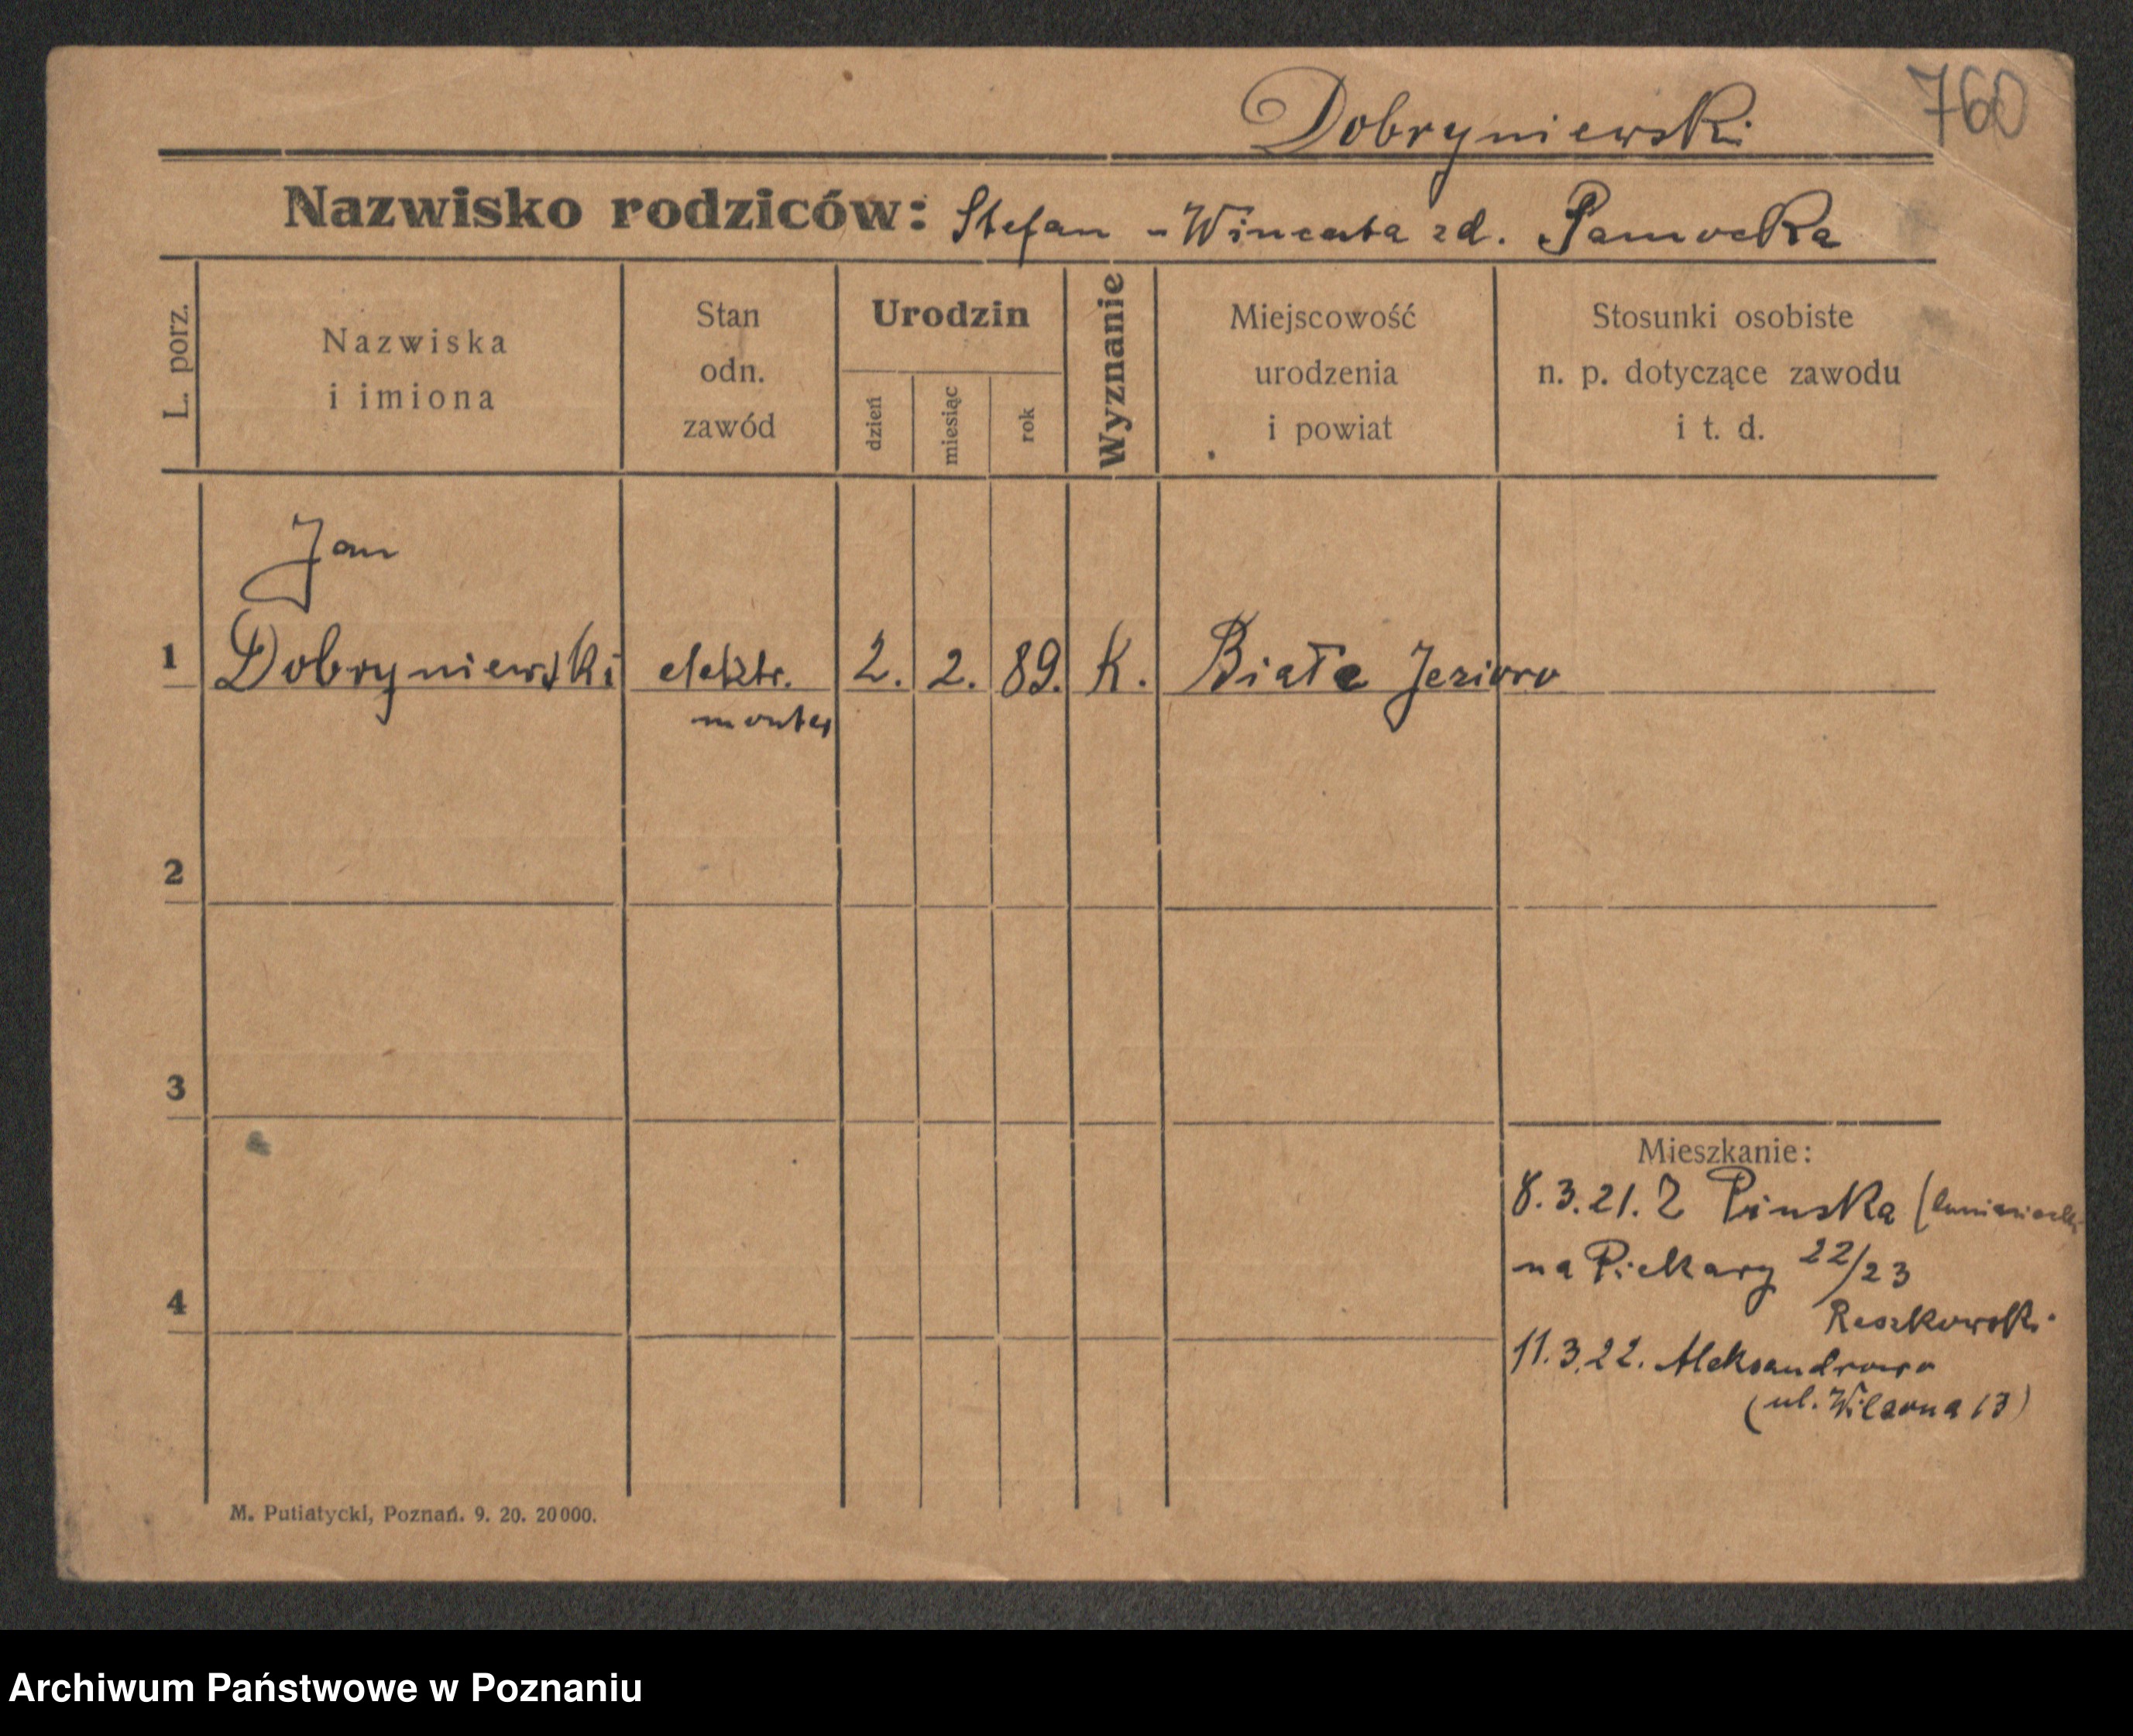 760
Dobryniewski
Nazwisko rodziców: Stefan - Wincenta zd.
L. porz.
Nazwiska
i imiona
Stan
odn.
zawód
Urodzin
dzień
miesiąc
rok
Wyznanie
Miejscowość
urodzenia
i powiat
Stosunki osobiste
n. p. dotyczące zawodu
i t. d.
Jan
1 Dobryniewski elektr. 2. 2. 89. K. Biała Jezioro
monter
2
3
Mieszkanie:
8.3.21. Z Pińska
na Piekary 22/23
Reszkowski
4
11.3.22. Aleksandrowo
(ul. Wilsona 13)
M. Putiatycki, Poznań. 9. 20. 20000.
Archiwum Państwowe w Poznaniu